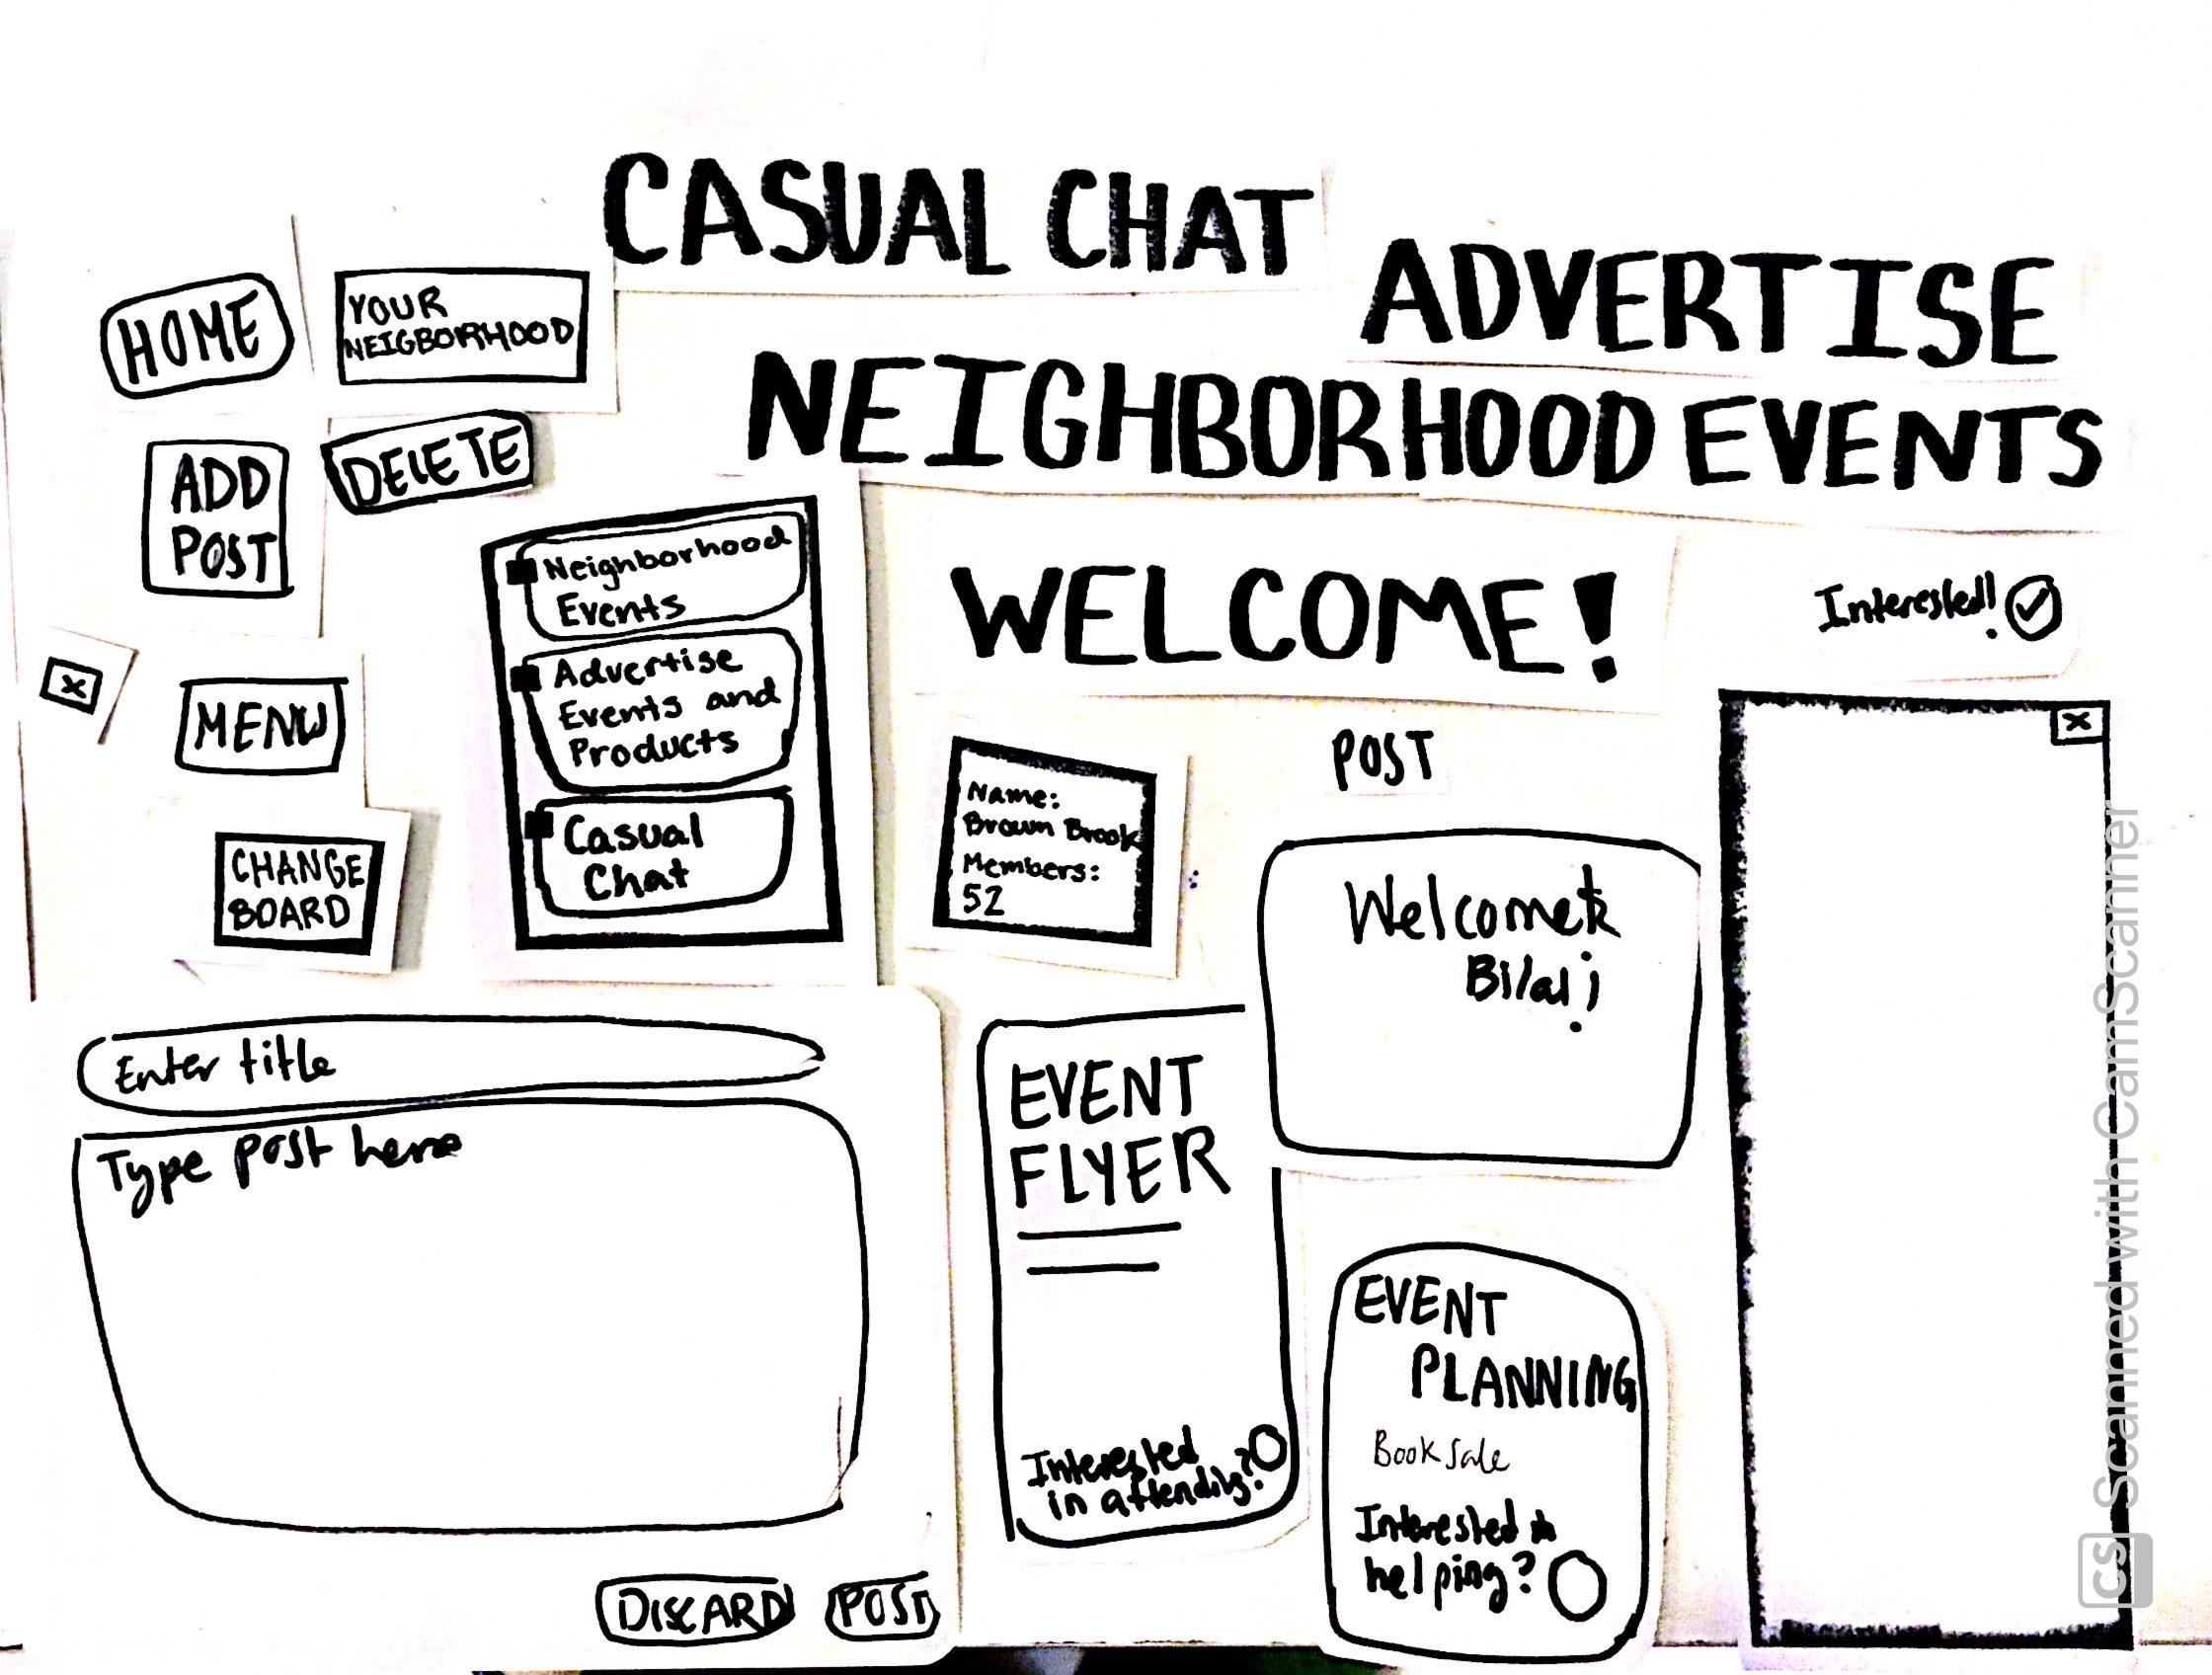 CASUAL CHAT
ADVERTISE
NEIGHBORHOOD EVENTS
HOME
YOUR
NEIGBORHOOD
ADD
POST
DELETE
Neighborhood
Events
Advertise
Events and
Products
Casual
Chat
WELCOME!
Interested!
X
MENU
CHANGE
BOARD
Name:
Brown Brook
Members:
52
POST
X
Bilal
Enter title
Type post here
DISCARD
POST
EVENT
FLYER
Interested
in attending?
EVENT
PLANNING
Book Sale
Interested in
helping?
CS Scanned with CamScanner